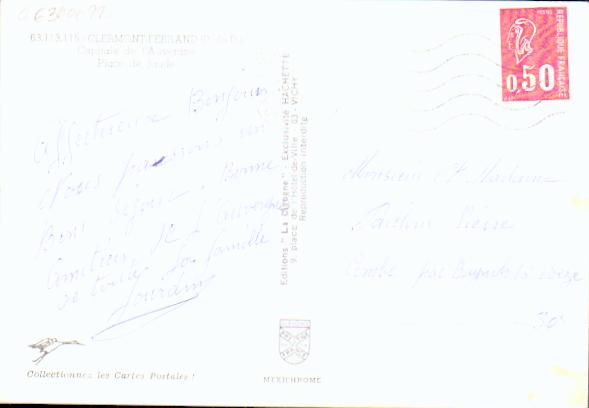 63.113.115 - CLERMONT-FERRAND (P.-de-D.)
Capitale de l'Auvergne
Place de Jaude
Affectueux Bonjour
Nous passons un
Bon séjour. Bonne
amitiés de l'Auvergne
de toute la famille
Editions "La Cigogne" - Exclusivité HACHETTE
9, place de l'Hôtel-de-Ville - 03 - VICHY
Reproduction interdite
POSTES
REPUBLIQUE FRANÇAISE
0,50
Monsieur et Madame
Pierre
Combe par
30
Collectionnez les Cartes Postales !
MEXICHROME